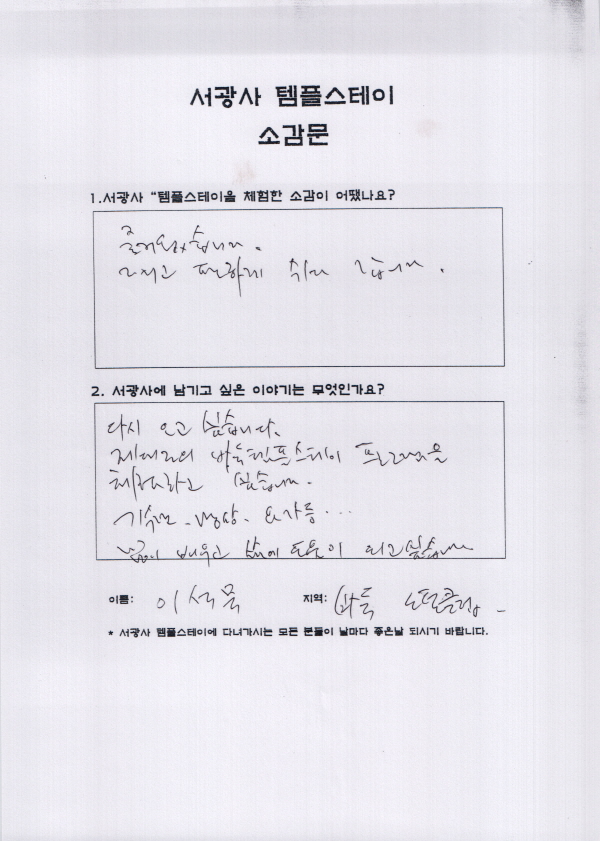 서광사 템플스테이
소감문
1.서광사 “템플스테이을 체험한 소감이 어땠나요?
즐거웠습니다.
그리고 편하게 쉬다 갑니다.
2. 서광사에 남기고 싶은 이야기는 무엇인가요?
다시 오고 싶습니다.
제대로의 바둑템플스테이 프로그램을
체험하고 싶습니다.
기수련. 명상. 요가등...
배우고 삶에 도움이 되고싶습니다
이름: 이석묵
지역: 바둑
* 서광사 템플스테이에 다녀가시는 모든 분들이 날마다 좋은날 되시기 바랍니다.